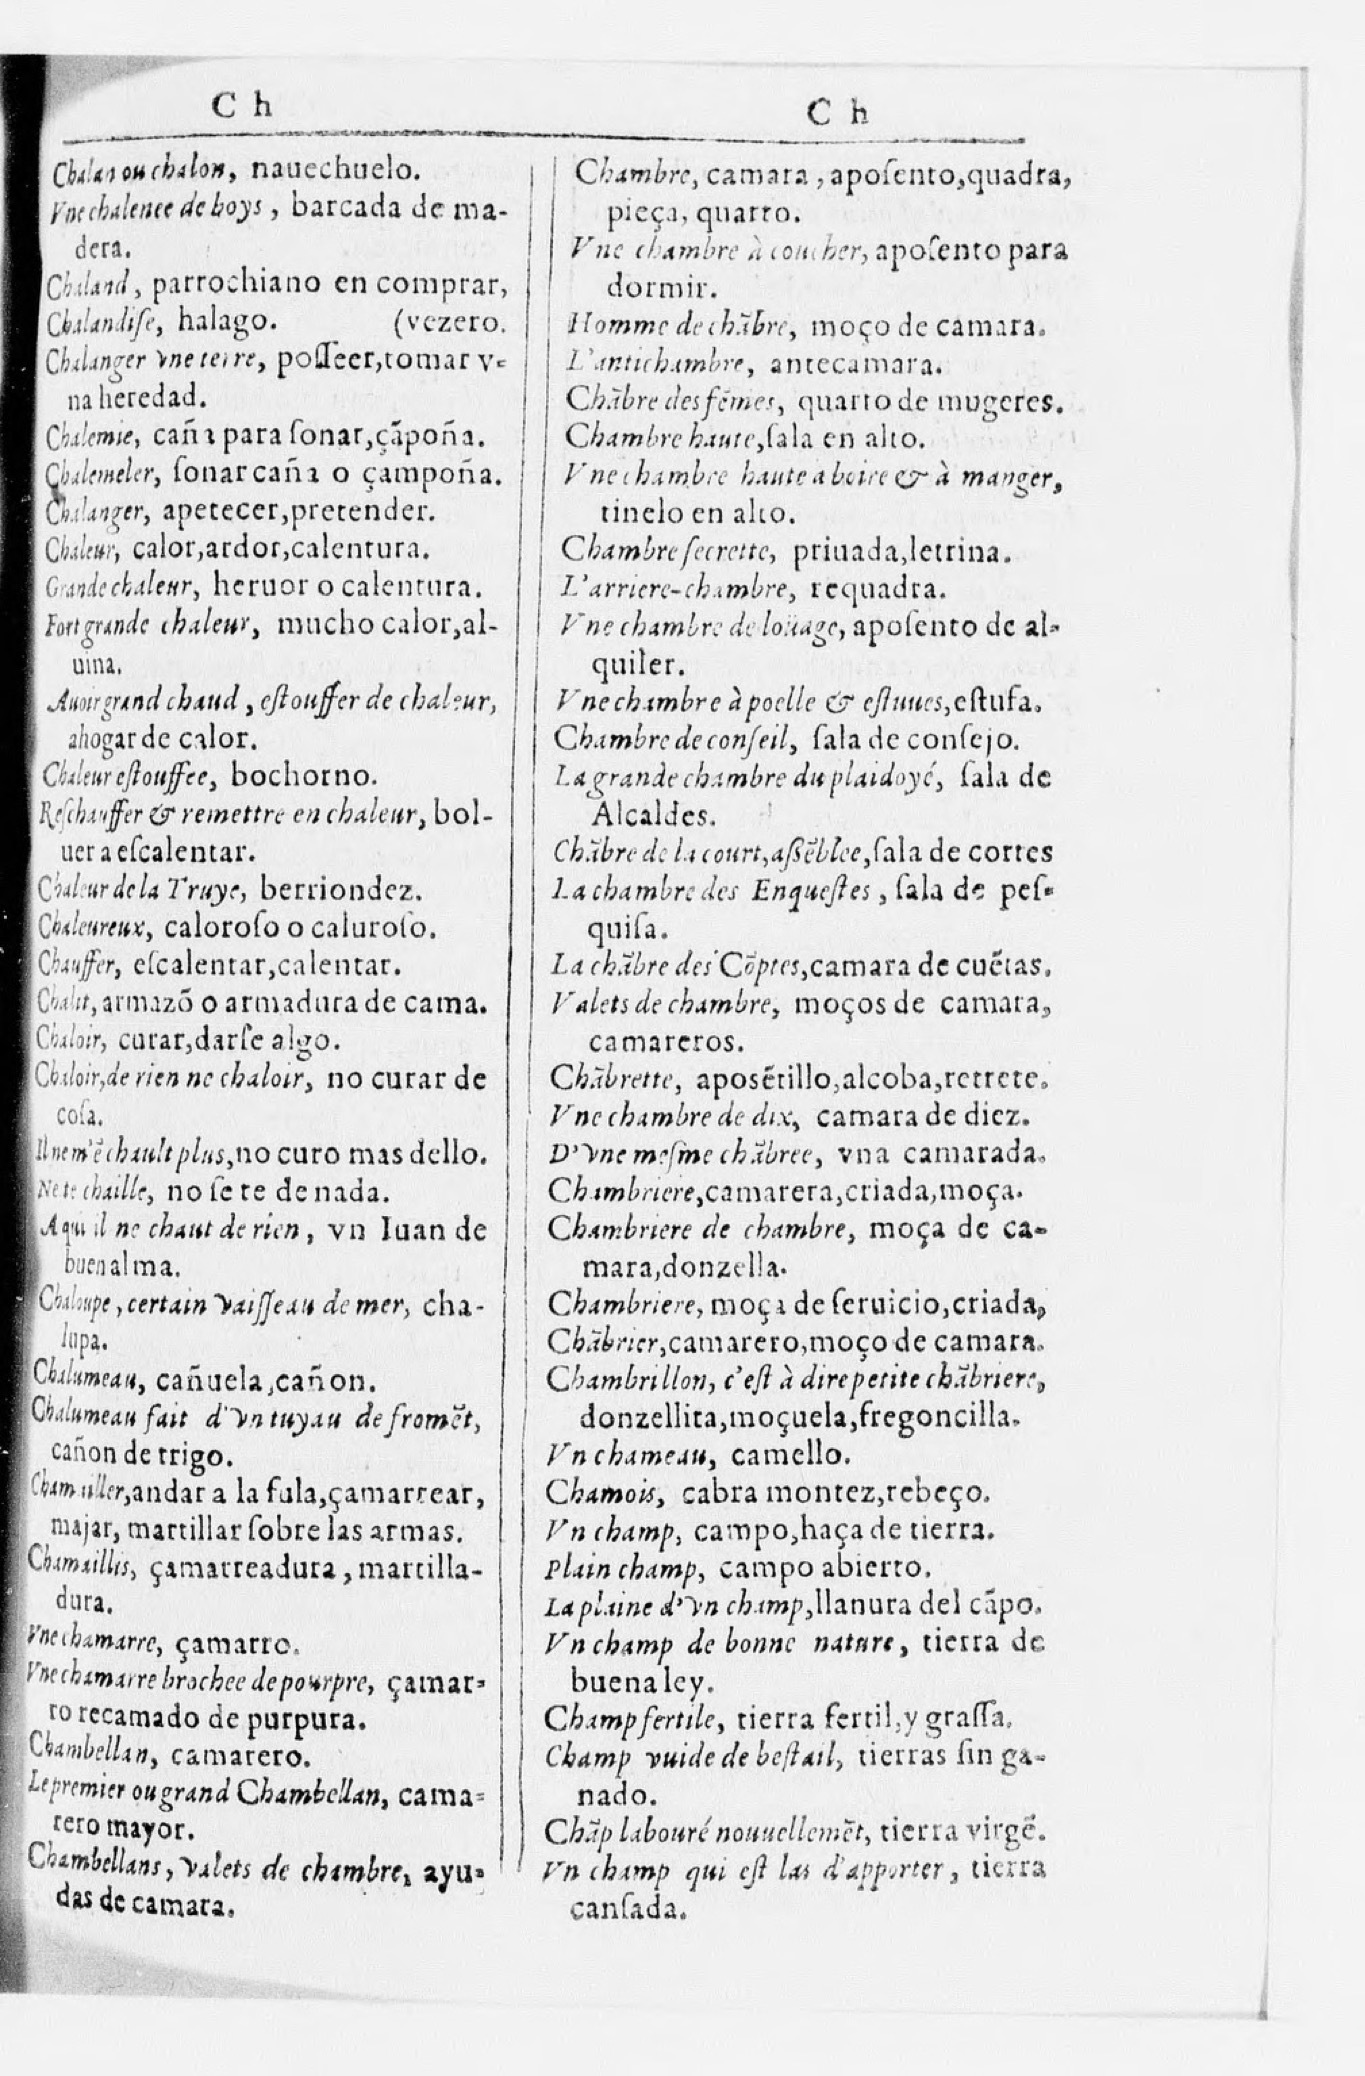 C h
Chalan ou chalon, nauechuelo.
Vne chalenee de boys, barcada de ma-
dera.
Chaland, parrochiano en comprar,
Chalandiſe, halago. (vezero.
Chalanger vne terre, poſſeer,tomar v-
na heredad.
Chalemie, caña para ſonar,çãpoña.
Chalemeler, ſonar caña o çampoña.
Chalanger, apetecer,pretender.
Chaleur, calor,ardor,calentura.
Grande chaleur, heruor o calentura.
Fort grande chaleur, mucho calor,al-
uina.
Auoir grand chaud, eſtouffer de chaleur,
ahogar de calor.
Chaleur eſtouffee, bochorno.
Reſchauffer & remettre en chaleur, bol-
uer a eſcalentar.
Chaleur de la Truye, berriondez.
Chaleureux, caloroſo o caluroſo.
Chauffer, eſcalentar,calentar.
Chalit, armazõ o armadura de cama.
Chaloir, curar,darſe algo.
Chaloir,de rien ne chaloir, no curar de
coſa.
Il ne m'ẽ chault plus,no curo mas dello.
Ne te chaille, no ſe te de nada.
A qui il ne chaut de rien, vn Iuan de
buen alma.
Chaloupe, certain vaiſſeau de mer, cha-
lupa.
Chalumeau, cañuela,cañon.
Chalumeau fait d'vn tuyau de fromẽt,
cañon de trigo.
Chamailler,andar a la fula,çamarrear,
majar, martillar ſobre las armas.
Chamaillis, çamarreadura, martilla-
dura.
Vne chamarre, çamarro.
Vne chamarre brochee de pourpre, çamar-
ro recamado de purpura.
Chambellan, camarero.
Le premier ou grand Chambellan, cama-
rero mayor.
Chambellans, valets de chambre, ayu-
das de camara.
C h
Chambre, camara, apoſento,quadra,
pieça, quarto.
Vne chambre à coucher, apoſento para
dormir.
Homme de chãbre, moço de camara.
L'antichambre, antecamara.
Chãbre des fẽmes, quarto de mugeres.
Chambre haute,ſala en alto.
Vne chambre haute a boire & à manger,
tinelo en alto.
Chambre ſecrette, priuada,letrina.
L'arriere-chambre, requadra.
Vne chambre de loüage, apoſento de al-
quiler.
Vne chambre à poelle & eſtuues,eſtufa.
Chambre de conſeil, ſala de conſejo.
La grande chambre du plaidoyé, ſala de
Alcaldes.
Chãbre de la court,aßẽblee,ſala de cortes
La chambre des Enqueſtes, ſala de peſ-
quiſa.
La chãbre des Cõptes,camara de cuẽtas.
Valets de chambre, moços de camara,
camareros.
Chãbrette, apoſẽtillo,alcoba,retrete.
Vne chambre de dix, camara de diez.
D'vne meſme chãbree, vna camarada.
Chambriere,camarera,criada,moça.
Chambriere de chambre, moça de ca-
mara,donzella.
Chambriere, moça de ſeruicio,criada,
Chãbrier,camarero,moço de camara.
Chambrillon, c'eſt à dire petite chãbriere,
donzellita,moçuela,fregoncilla.
Vn chameau, camello.
Chamois, cabra montez,rebeço.
Vn champ, campo,haça de tierra.
Plain champ, campo abierto.
La plaine d'vn champ,llanura del cãpo.
Vn champ de bonne nature, tierra de
buena ley.
Champ fertile, tierra fertil,y graſſa.
Champ vuide de beſtail, tierras ſin ga-
nado.
Chãp labouré nouuellemẽt, tierra virgẽ.
Vn champ qui eſt las d'apporter, tierra
canſada.